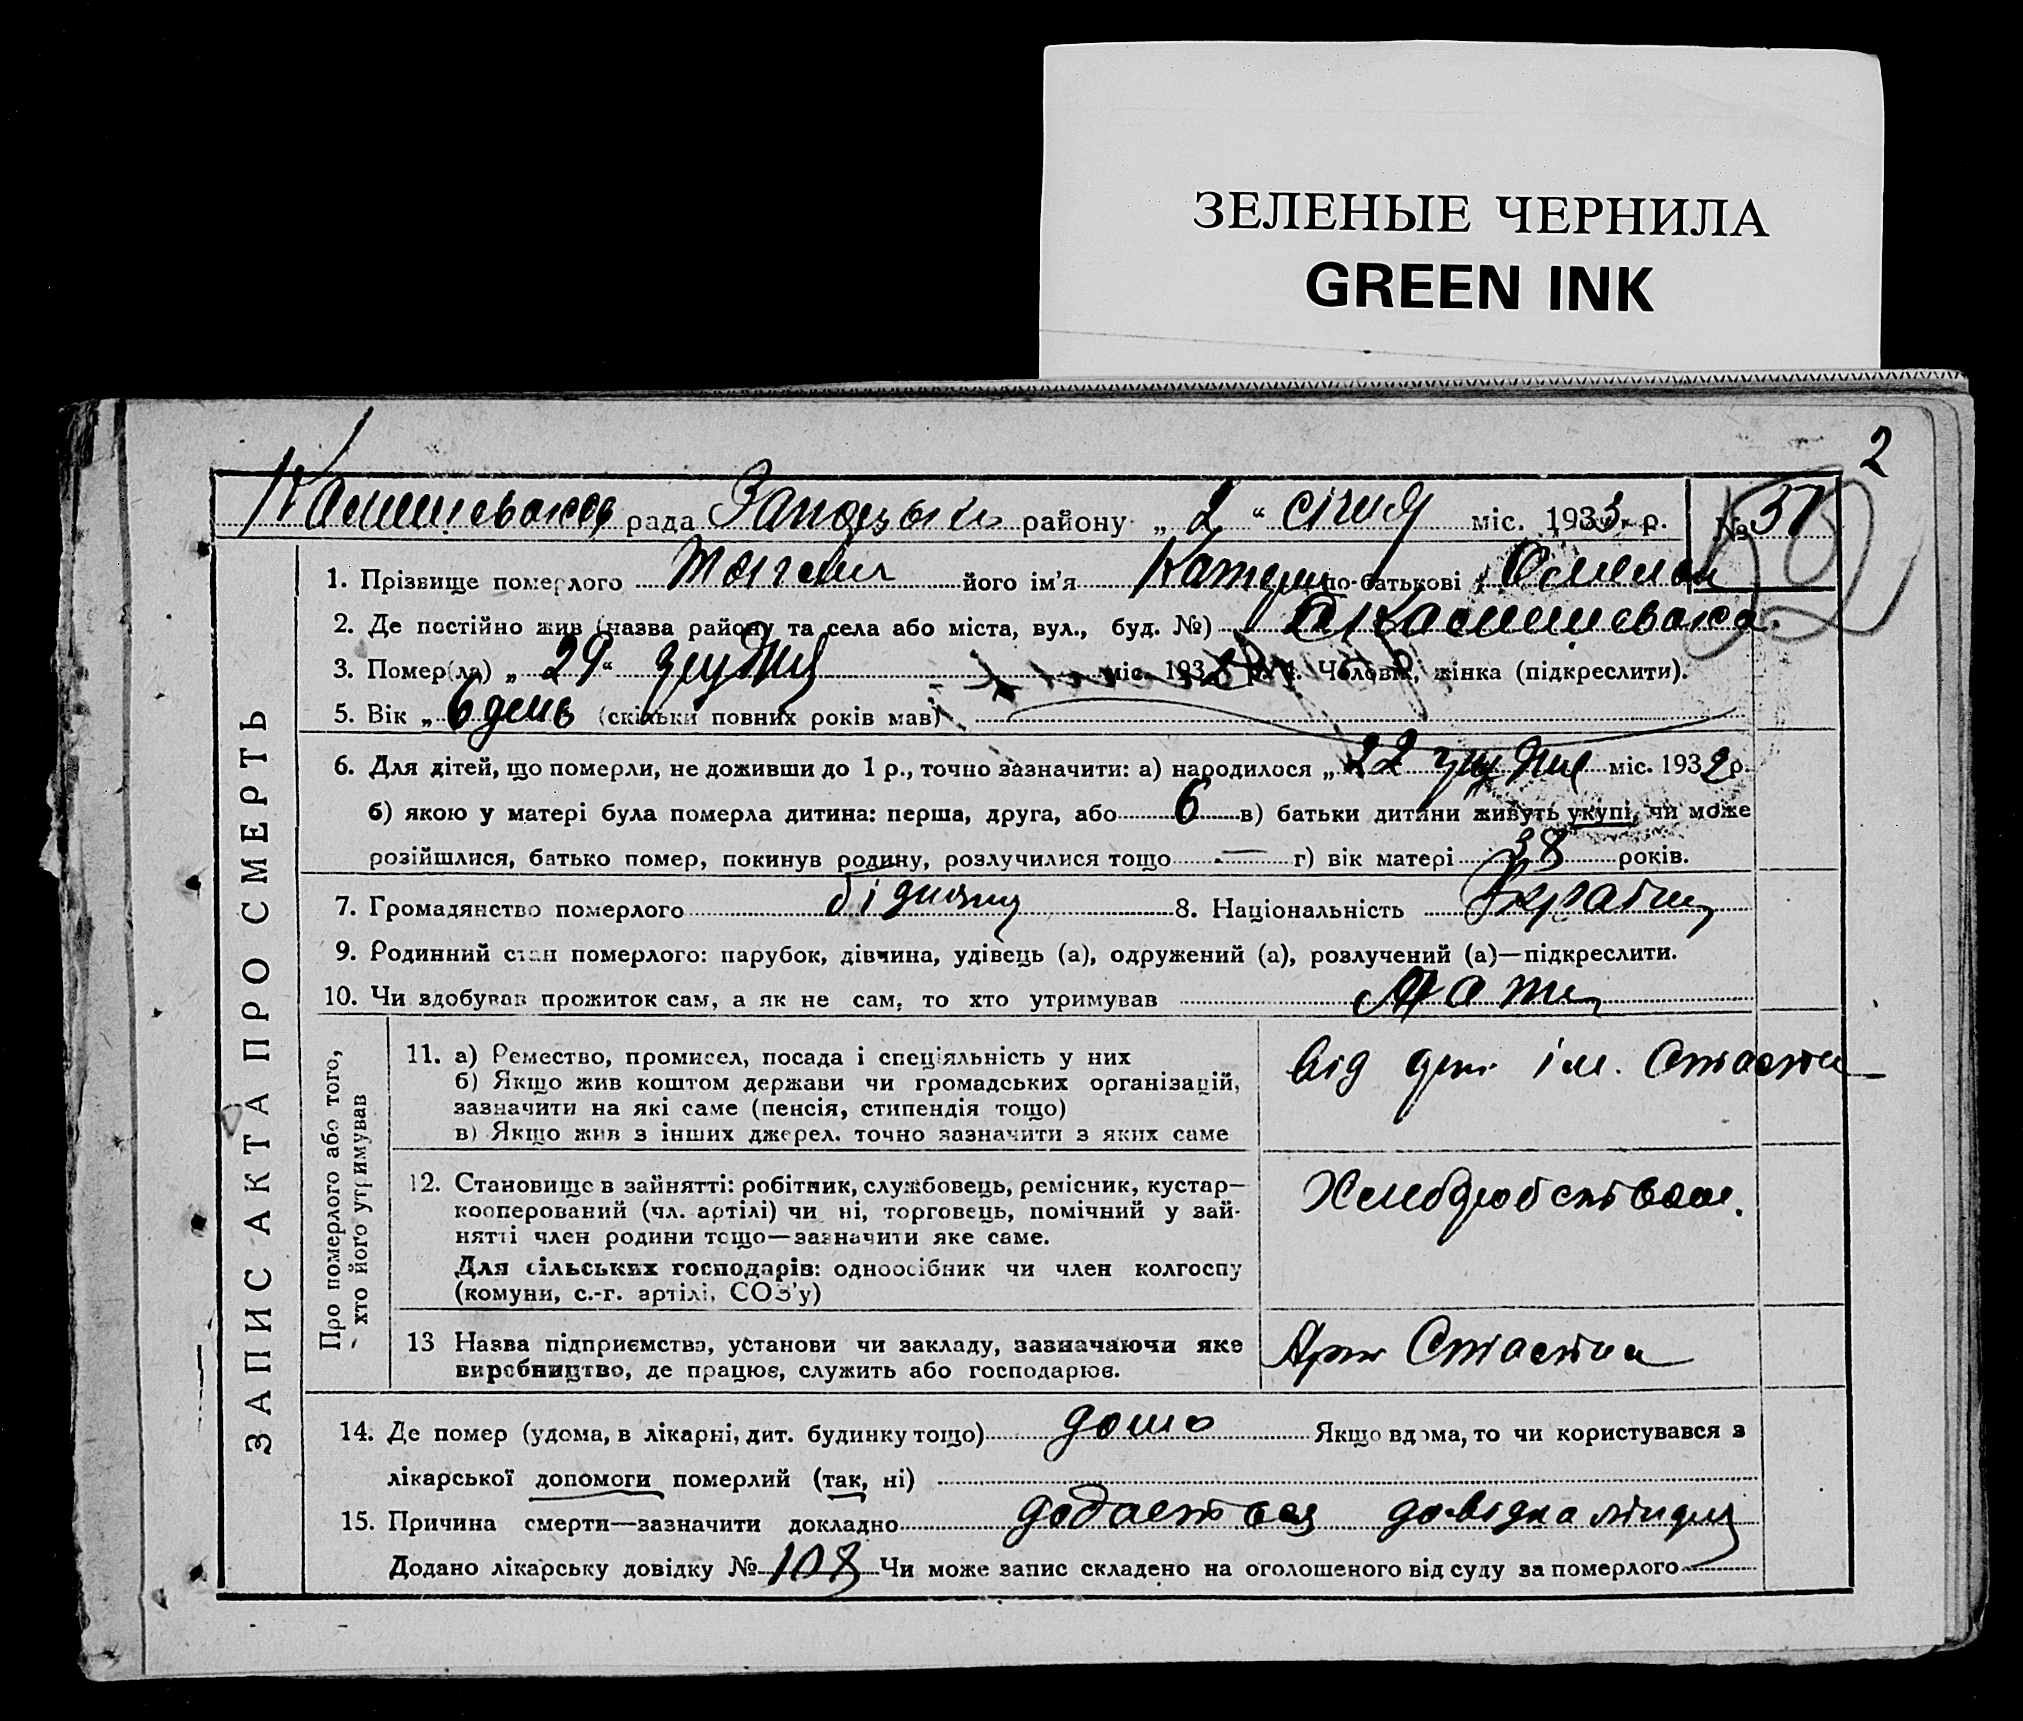 ЗЕЛЕНЫЕ ЧЕРНИЛА
GREEN INK
2
рада району „ 2 “ січня міс. 1933 р. № 37
ЗАПИС АКТА ПРО СМЕРТЬ
1. Прізвище померлого його ім'я Катерин по-батькові
2. Де постійно жив (назва району та села або міста, вул., буд. №)
3. Помер(ла) „ 29 “ грудня міс. 193 р. 4. Чоловік, жінка (підкреслити).
5. Вік „ 6 день (скільки повних років мав)
6. Для дітей, що померли, не доживши до 1 р., точно зазначити: а) народилося „ 22 грудня міс. 1932 р.
б) якою у матері була померла дитина: перша, друга, або 6 в) батьки дитини живуть укупі, чи може
розійшлися, батько помер, покинув родину, розлучилися тощо — г) вік матері 38 років.
7. Громадянство померлого 8. Національність Україн
9. Родинний стан померлого: парубок, дівчина, удівець (а), одружений (а), розлучений (а)—підкреслити.
10. Чи здобував прожиток сам, а як не сам, то хто утримував Мати
Про померлого або того,
хто його утримував
11. а) Ремество, промисел, посада і спеціяльність у них
б) Якщо жив коштом держави чи громадських організацій,
зазначити на які саме (пенсія, стипендія тощо)
в) Якщо жив з інших джерел, точно зазначити з яких саме
від ім.
12. Становище в зайнятті: робітник, службовець, ремісник, кустар—
кооперований (чл. артілі) чи ні, торговець, помічний у зай-
нятті член родини тощо—зазначити яке саме.
Для сільських господарів: одноосібник чи член колгоспу
(комуни, с.-г. артілі, СОЗ'у)
13 Назва підприємства, установи чи закладу, зазначаючи яке
виробництво, де працює, служить або господарює.
14. Де помер (удома, в лікарні, дит. будинку тощо) дома Якщо вдома, то чи користувався з
лікарської допомоги померлий (так, ні)
15. Причина смерти—зазначити докладно додається довідка
Додано лікарську довідку № 108 Чи може запис складено на оголошеного від суду за померлого